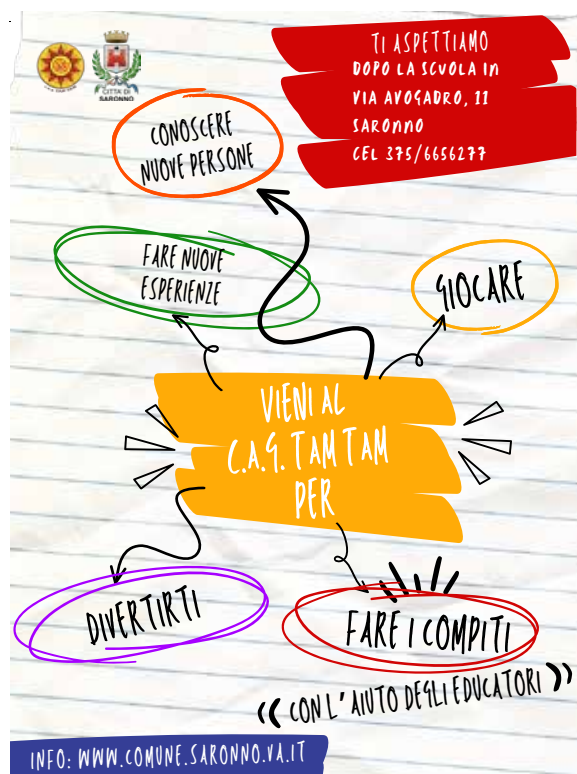 CITTÀ DI
SARONNO
TI ASPETTIAMO
DOPO LA SCUOLA IN
VIA AVOGADRO, 11
SARONNO
CEL 375/6656277
CONOSCERE
NUOVE PERSONE
FARE NUOVE
ESPERIENZE
GIOCARE
VIENI AL
C.A.G. TAM TAM
PER
DIVERTIRTI
FARE I COMPITI
(( CON L' AIUTO DEGLI EDUCATORI ))
INFO: WWW.COMUNE.SARONNO.VA.IT